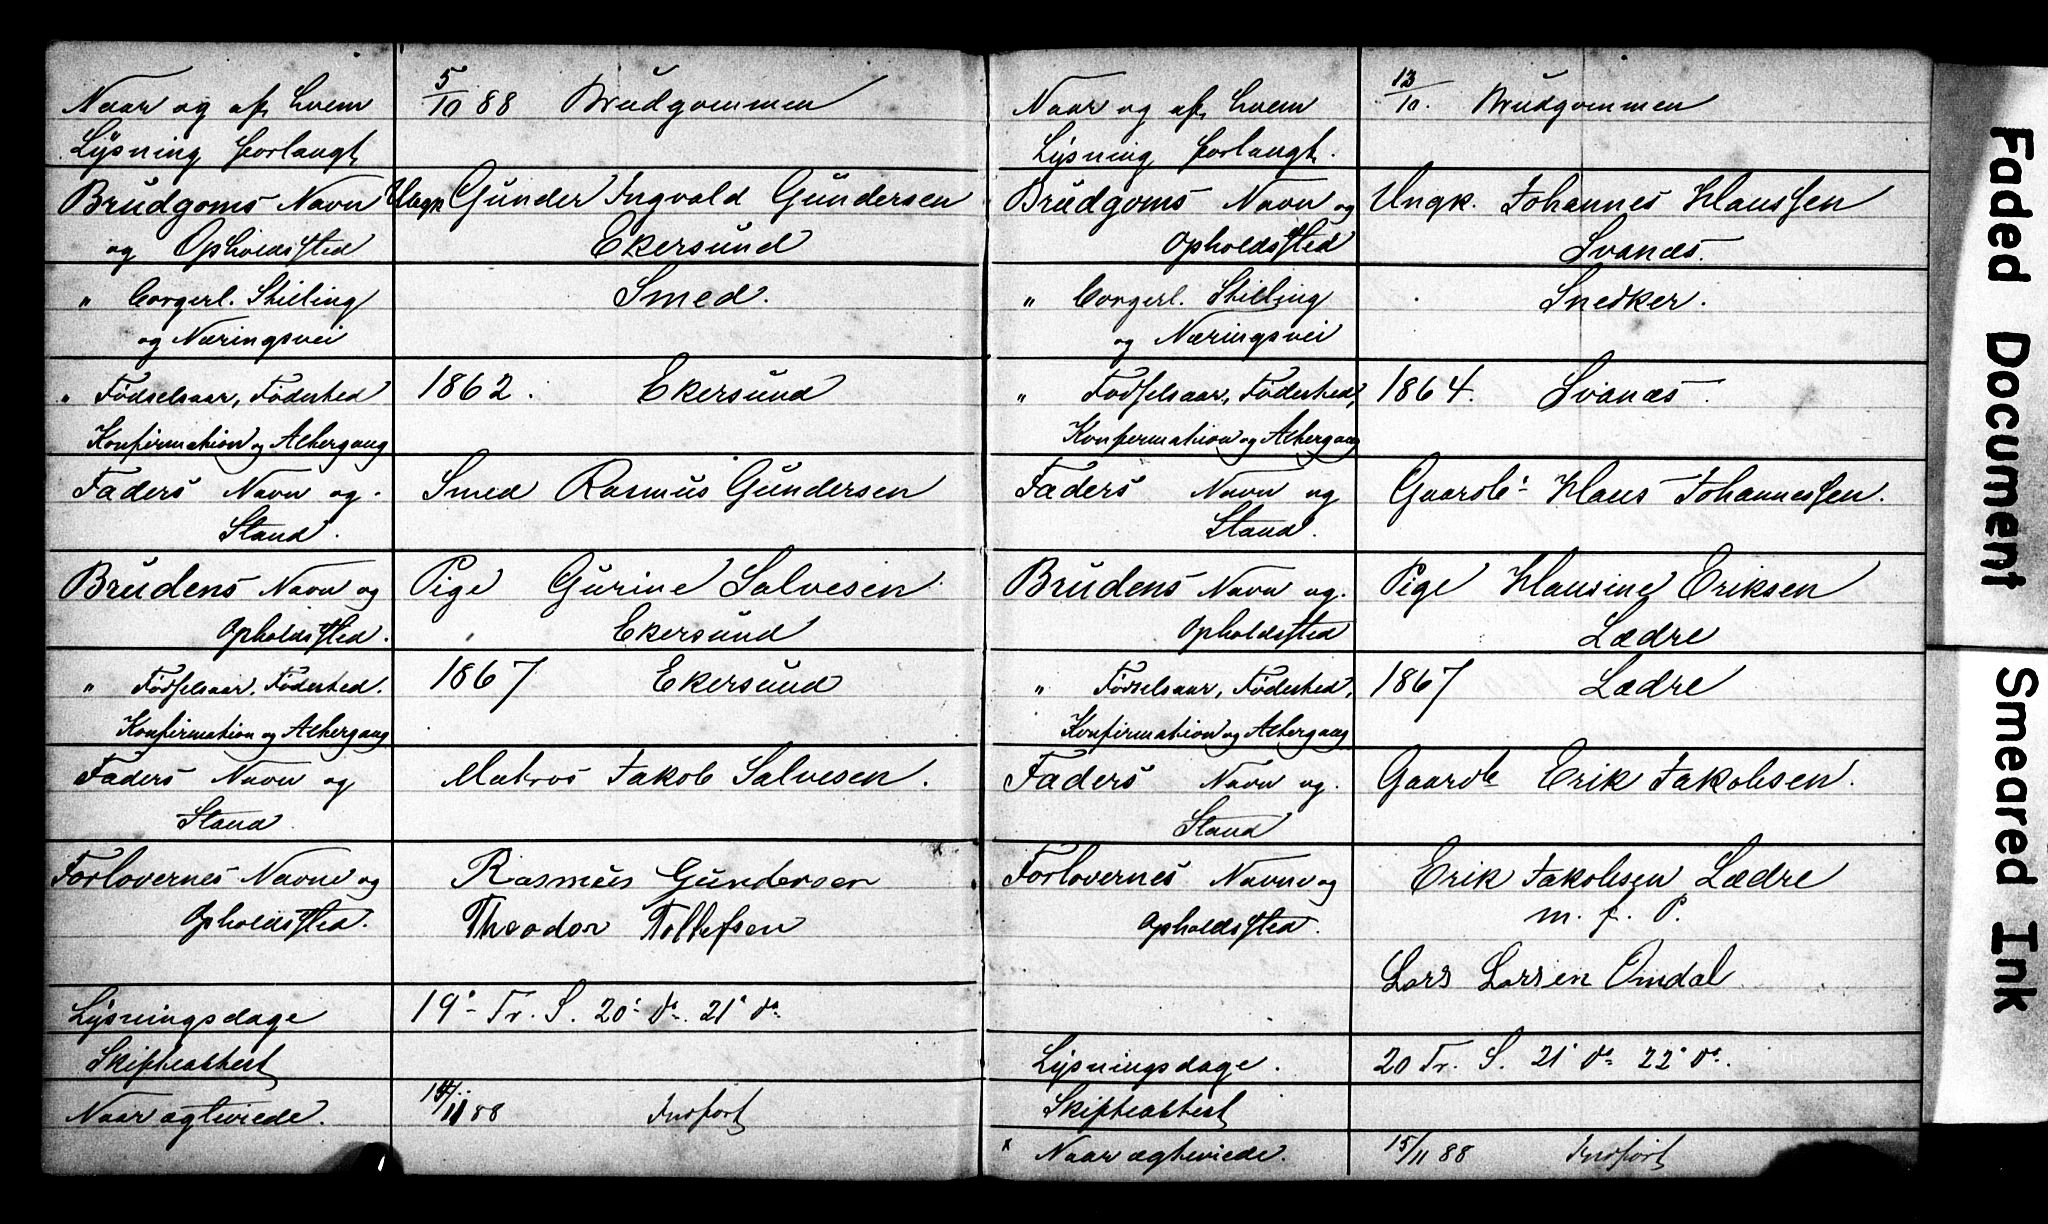 Naar og af hvem 5/10 88 Brudgommen
Lysning forlangt
Brudgoms Navn Ungk Gunder Ingvald Gundersen
og Opholdssted Ekersund
" borgerl. Stilling Smed.
og Næringsvei
" Fødselsaar, Fødested 1862. Ekersund
Konfirmation og Altergang
Faders Navn og Smed Rasmus Gundersen
Stand.
Brudens Navn og Pige Gurine Salvesen
Opholdssted. Ekersund
" Fødselsaar, Fødested. 1867 Ekersund
Konfirmation og Altergang
Faders Navn og Matros Jakob Salvesen.
Stand
Forlovernes Navne og Rasmus Gundersen
Opholdssted. Theodor Tollefsen
Lysningsdage 19' Tr. S. 20' do 21' do
Skifteattest
Naar ægteviede. 14/11 88 Indført
Naar og af hvem 13/10. Brudgommen
Lysning forlangt.
Brudgoms Navn og Ungk. Johannes Klaussen
Opholdssted Svanæs.
" borgerl. Stilling Snedker.
og Næringsvei
" Fødselsaar, Fødested, 1864. Svanæs.
Konfirmation og Altergang
Faders Navn og Gaardb' Klaus Johannessen.
Stand.
Brudens Navn og. Pige Klausine Eriksen
Opholdssted Lædre
" Fødselsaar, Fødested, 1867 Lædre
Konfirmation og Altergang
Faders Navn og. Gaardb Erik Jakobsen.
Stand
Forlovernes Navne og Erik Jakobsen Lædre
Opholdssted. m. f. P.
Lars Larsen Omdal
Lysningsdage. 20 Tr. S. 21' do 22' do.
Skifteattest
x Naar ægteviede. 15/11 88 Indført
Faded Document
Smeared Ink